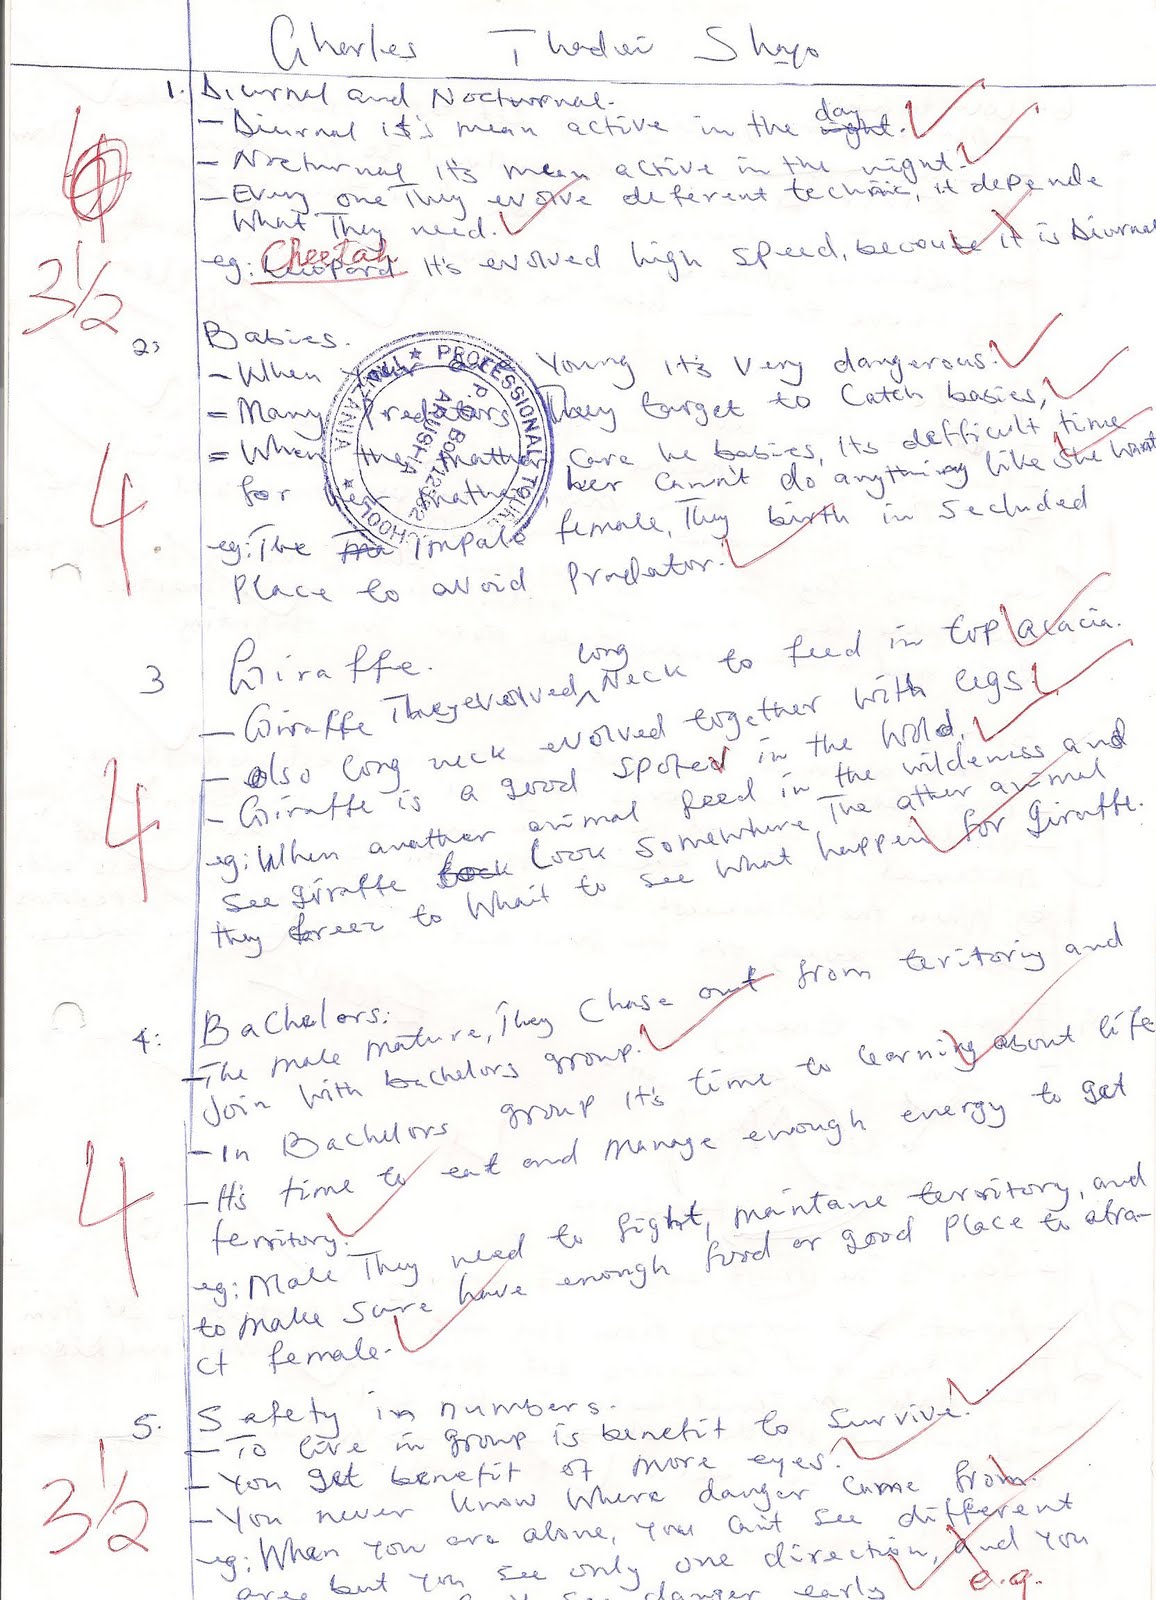 Charles Thadei Shayo
1. Diurnal and Nocturnal.
- Diurnal it's mean active in the night. day
- Nocturnal it's mean active in the night.
- Every one They evolve deferent technic, it depende
What They need.
eg: Leopard Cheetah It's evolved high speed, becouse it is Diurnal
3 1/2
2: Babies.
- When Young it's very dangerous.
= Many Predators They target to Catch babies,
= When the mather care he babies, its defficult time
for her mather ber Cann't do anything like she want
eg: The Impala female, They birth in Secluded
Place to avoid Predator.
4
3 Giraffe.
- Giraffe They evolved long Neck to feed in top acacia.
- also long neck evolved together with legs.
- Giraffe is a good spoted in the Wild.
eg: When anather animal feed in the wildeness and
see giraffe look Look Somewhere The ather animal
they freez to Whait to see what happen for giraffe.
4
4: Bachelors:
- The male mature, They Chase out from teritoriy and
Join with bachelors group.
- In Bachelors group It's time to learning about life
- It's time to eat and manage enough energy to get
territory.
eg: Male They need to fight, maintane territory, and
to make sure have enough food or good Place to atra-
ct female.
4
5. Safety in numbers.
- To live in group is benefit to survive.
- You get benefit of more eyes.
- You never know where danger came from.
eg: When you are alone, you can't see different
area but you see only one direction, and you
see danger early
e.g.
3 1/2
★ PROFESSIONAL TOUR SCHOOL ★ TANZANIA
P.O. BOX 12392
ARUSHA